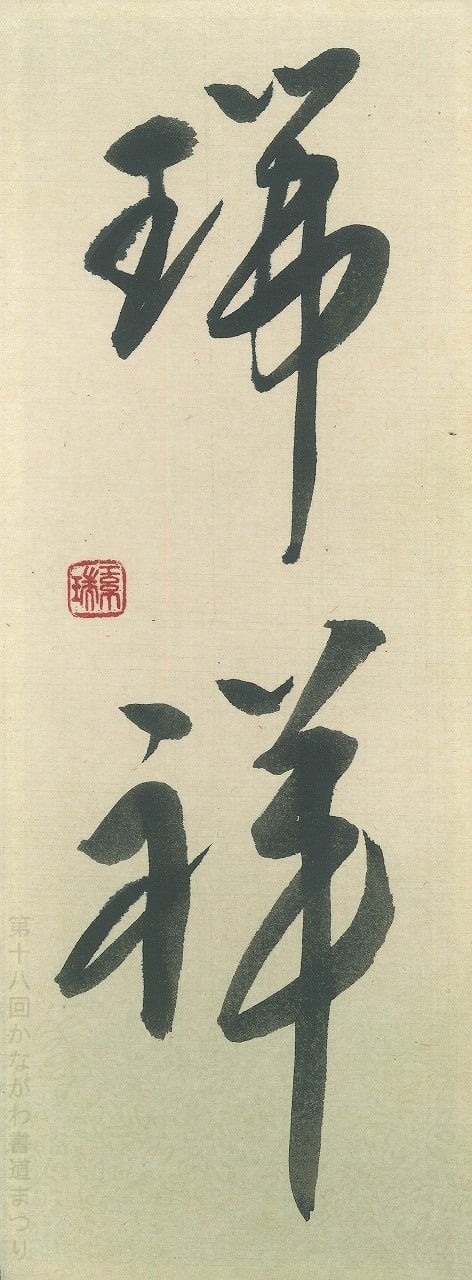 瑞祥
第十八回かながわ書道まつり